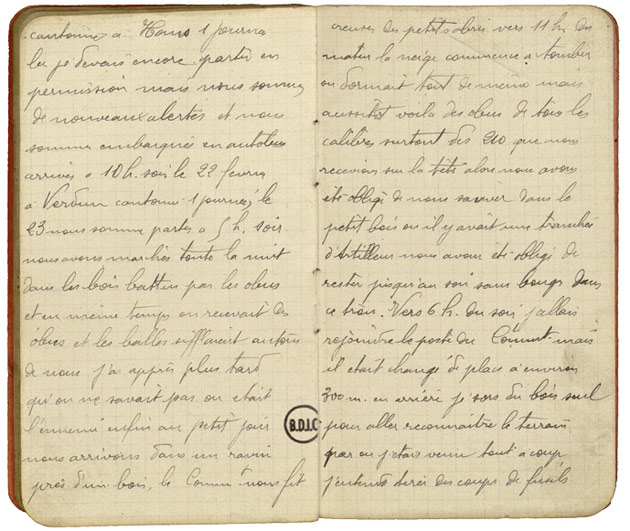 cantonné a Hans 1 journée
la je devais encore partir en
permission mais nous sommes
de nouveaux alertés et nous
somme embarqués en autobus
arrivés a 10 h. soir le 22 fevrier
a Verdun cantonné 1 journée, le
23 nous somme partis a 5 h. soir
nous avons marchés toute la nuit
dans les bois battus par les obus
et en même temps on recevait des
obus et les balles sifflaient autour
de nous j'ai appris plus tard
qu'on ne savait pas ou etait
l'ennemi enfin au petit jour
nous arrivons dans un ravin
près d'un bois, le Comm nous fit
creuser des petits abris vers 11 h. du
matin la neige commence a tomber
on dormait tout de meme mais
aussitot voila des obus de tous les
calibres surtout des 210 que nous
recevions sur la tête alors nous avons
été obligé de nous sauver dans le
petit bois ou il y avait une tranchée
d'artilleur nous avons été obligé de
rester jusqu'au soir sans bouger dans
ce trou. Vers 6 h. du soir j'allais
rejoindre le poste du Commt. mais
il etait changé de place a environ
300 m. en arrière je sors du bois seul
pour aller reconnaitre le terrain
par ou j'etais venu tout a coup
j'entends tirer des coups de fusils
B.D.I.C